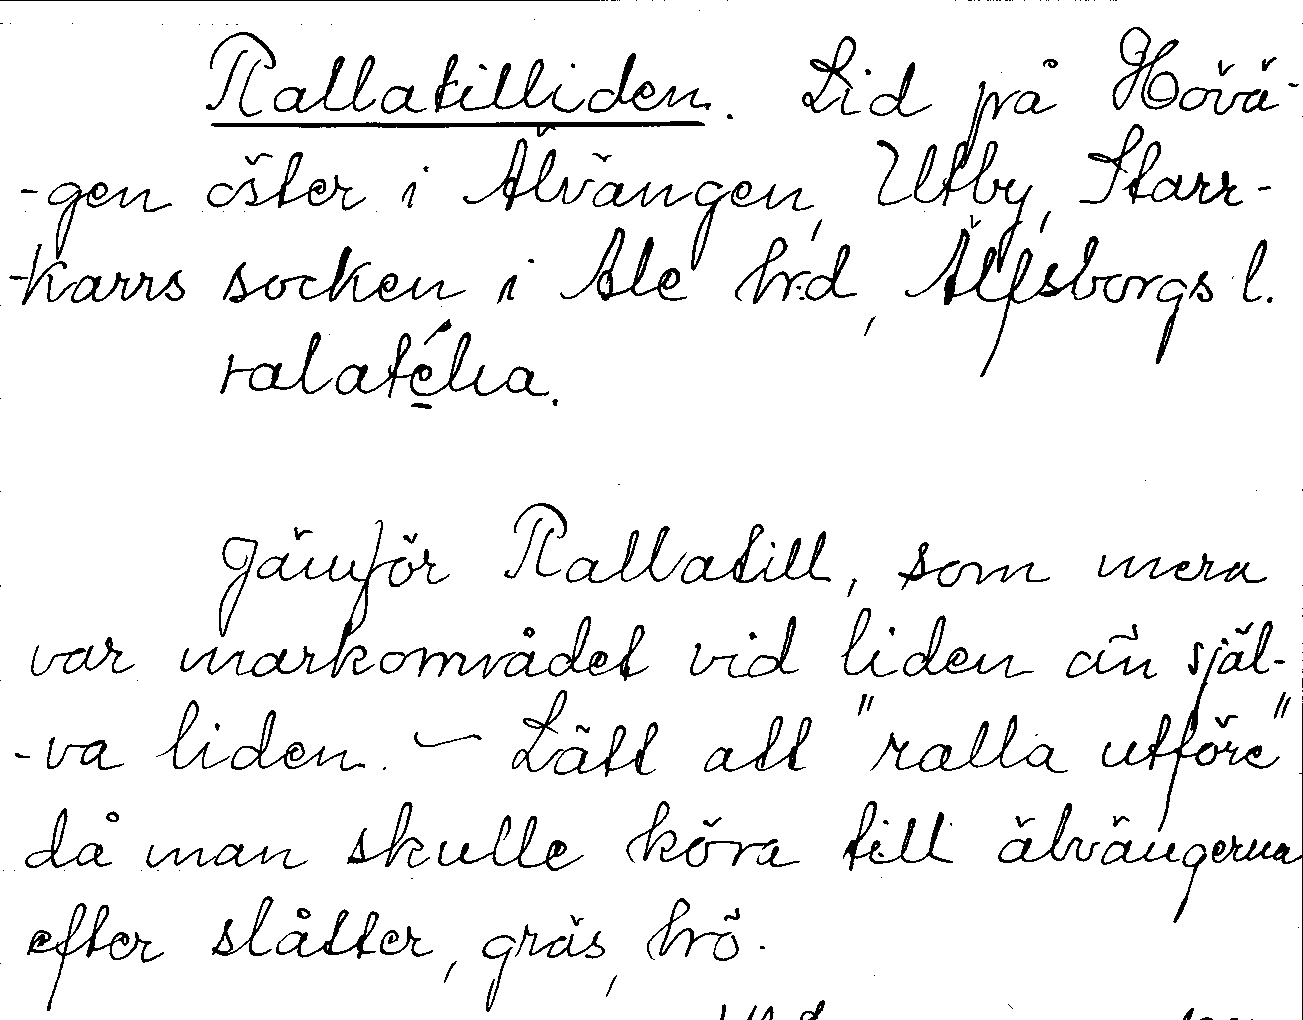 Rallatilliden. Lid på Hövä-
-gen öster i Älvängen, Utby, Starr-
-kärrs socken i Ale hrd, Älfsborgs l.
ralatélia.
Jämför Rallatill, som mera
var markområdet vid liden än själ-
-va liden. – Lätt att "ralla utföre"
då man skulle köra till älvängerna
efter slåtter, gräs, hö.